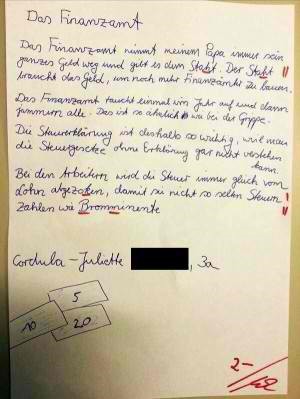 Das Finanzamt
Das Finanzamt nimmt meinem Papa immer sein
ganzes Geld weg und gibt es dem Staht. Der Staht
braucht das Geld, um noch mehr Finanzämter zu bauen.
Das Finanzamt taucht einmal im Jahr auf und dann
jammern alle. Das ist so ähnlich wie bei der Grippe.
Die Steuererklärung ist deshalb so wichtig, weil man
die Steuergesetze ohne Erklärung gar nicht verstehen
kann.
Bei den Arbeitern wird die Steuer immer gleich vom
Lohn abgezoken, damit sie nicht so selten Steuern
Zahlen wie Bromminente
Cordula-Juliette , 3a
5
10
20
2-